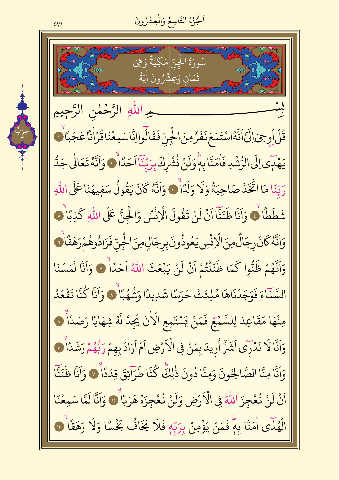 اَلْجُزْءُ التَّاسِعُ وَالْعِشْرُونَ
سُورَةُ الْجِنِّ مَكِّيَّةٌ وَهِيَ
ثَمَانٍ وَعِشْرُونَ اٰيَةً
بِسْمِ اللّٰهِ الرَّحْمٰنِ الرَّحٖيمِ
قُلْ اُوحِيَ اِلَيَّ اَنَّهُ اسْتَمَعَ نَفَرٌ مِنَ الْجِنِّ فَقَالُٓوا اِنَّا سَمِعْنَا قُرْاٰنًا عَجَبًا
يَهْدٖٓي اِلَى الرُّشْدِ فَاٰمَنَّا بِهٖ وَلَنْ نُشْرِكَ بِرَبِّنَٓا اَحَدًا وَاَنَّهُ تَعَالٰى جَدُّ
رَبِّنَا مَا اتَّخَذَ صَاحِبَةً وَلَا وَلَدًا وَاَنَّهُ كَانَ يَقُولُ سَفٖيهُنَا عَلَى اللّٰهِ
شَطَطًا وَاَنَّا ظَنَنَّٓا اَنْ لَنْ تَقُولَ الْاِنْسُ وَالْجِنُّ عَلَى اللّٰهِ كَذِبًا
وَاَنَّهُ كَانَ رِجَالٌ مِنَ الْاِنْسِ يَعُوذُونَ بِرِجَالٍ مِنَ الْجِنِّ فَزَادُوهُمْ رَهَقًا
وَاَنَّهُمْ ظَنُّوا كَمَا ظَنَنْتُمْ اَنْ لَنْ يَبْعَثَ اللّٰهُ اَحَدًا وَاَنَّا لَمَسْنَا
السَّمَٓاءَ فَوَجَدْنَاهَا مُلِئَتْ حَرَسًا شَدٖيدًا وَشُهُبًا وَاَنَّا كُنَّا نَقْعُدُ
مِنْهَا مَقَاعِدَ لِلسَّمْعِ فَمَنْ يَسْتَمِعِ الْاٰنَ يَجِدْ لَهُ شِهَابًا رَصَدًا
وَاَنَّا لَا نَدْرٖٓي اَشَرٌّ اُرٖيدَ بِمَنْ فِي الْاَرْضِ اَمْ اَرَادَ بِهِمْ رَبُّهُمْ رَشَدًا
وَاَنَّا مِنَّا الصَّالِحُونَ وَمِنَّا دُونَ ذٰلِكَ كُنَّا طَرَٓائِقَ قِدَدًا وَاَنَّا ظَنَنَّٓا
اَنْ لَنْ نُعْجِزَ اللّٰهَ فِي الْاَرْضِ وَلَنْ نُعْجِزَهُ هَرَبًا وَاَنَّا لَمَّا سَمِعْنَا
الْهُدٰٓى اٰمَنَّا بِهٖ فَمَنْ يُؤْمِنْ بِرَبِّهٖ فَلَا يَخَافُ بَخْسًا وَلَا رَهَقًا